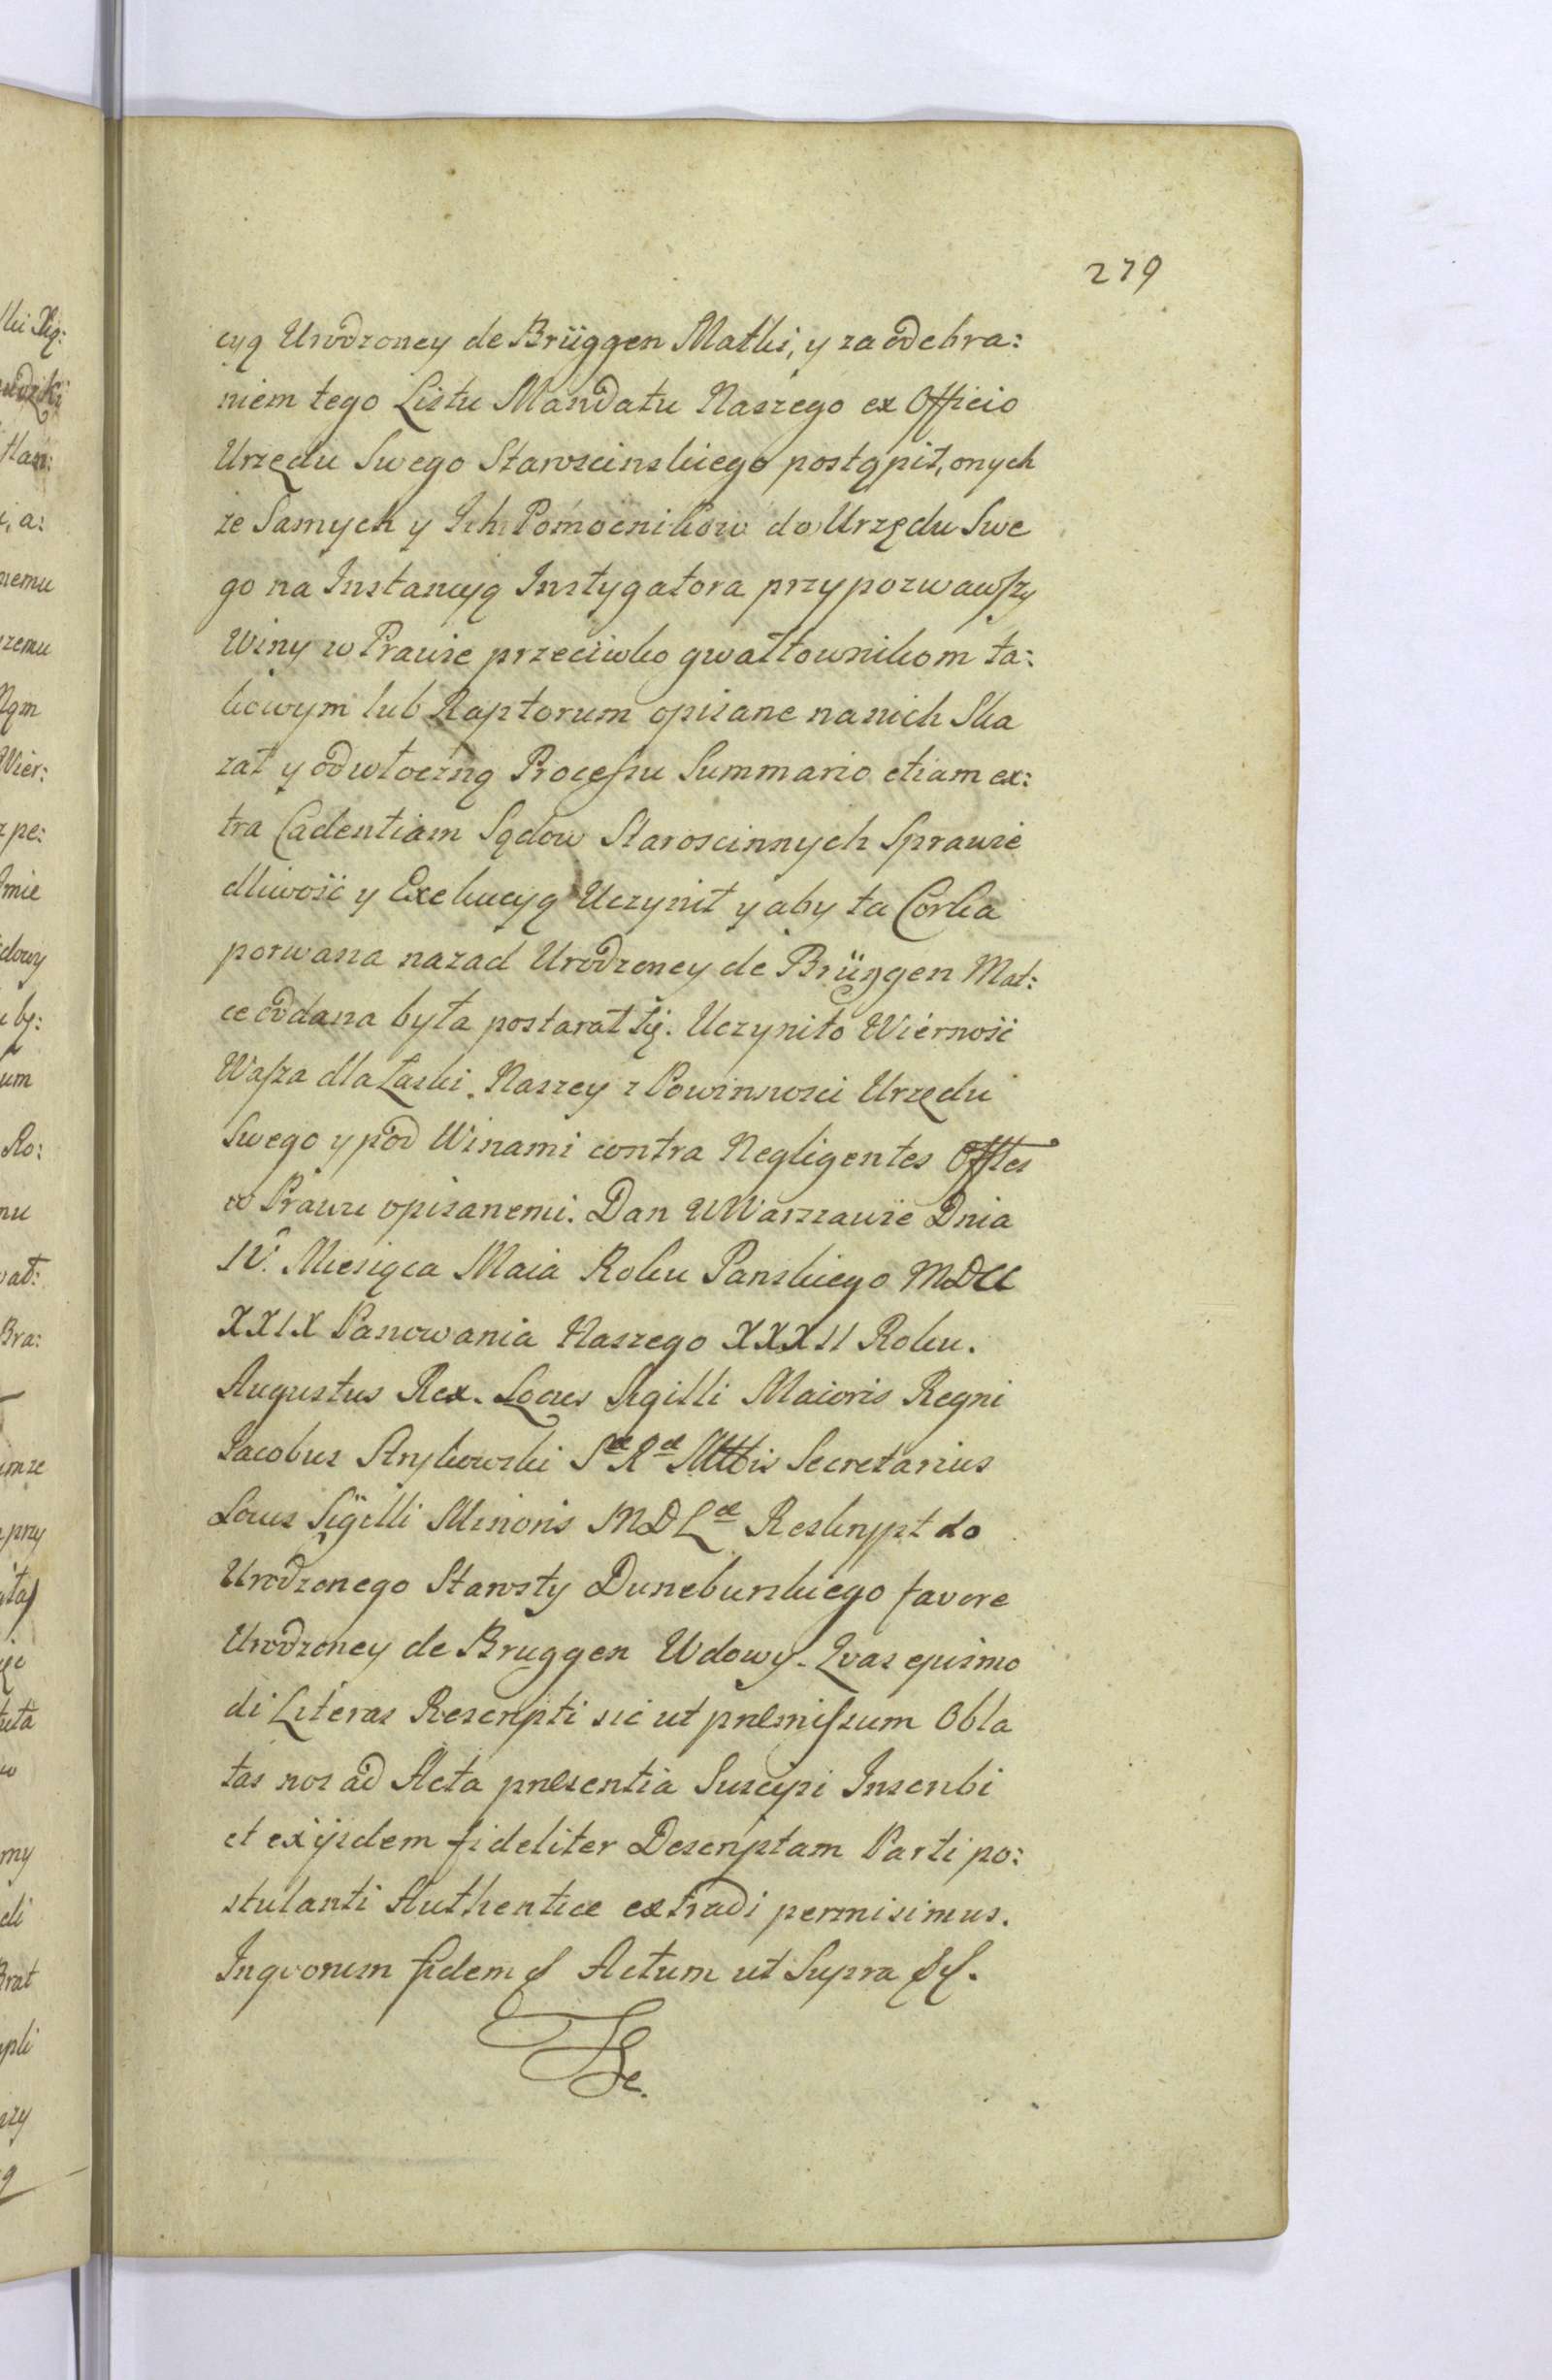 279
cyą Urodzoney de Brüggen Matki, y za odebra:
niem tego Listu Mandatu Naszego ex Officio
Urzędu Swego Staroscinskiego postąpił, onych
że Samych y Ich Pomocnikow do Urzędu Swe
go na Instancyą Instygatora przypozwawszy
Winy w Prawie przeciwko gwałtownikom ta:
kowym lub Raptorum opisane na nich Ska
zał y odwłoczną Processu Summario etiam ex:
tra Cadentiam Sądow Staroscinnych Sprawie
dliwość y Exekucyą Uczynił y aby ta Corka
porwana nazad Urodzoney de Brüggen Mat:
ce oddana była postarał się. Uczyniło Wierność
Wasza dla Łaski Naszey z Powinności Urzędu
Swego y pod Winami contra Negligentes Offles
w Prawie opisanemi. Dan w Warszawie Dnia
IV. Miesiąca Maia Roku Panskiego MDCC
XXIX Panowania Naszego XXXII Roku.
Augustus Rex. Locus Sigilli Maioris Regni
Jacobus Strykowski Sæ Ræ Mttis Secretarius
Locus Sigilli Minoris MDLæ Reskrypt do
Urodzonego Starosty Duneburskiego favore
Urodzoney de Bruggen Wdowy. Qvas ejusmo
di Literas Rescripti sic ut præmissum Obla
tas nos ad Acta præsentia Suscipi Inscribi
et ex ijsdem fideliter Descriptam Parti po:
stulanti Authentice extradi permisimus.
In qvorum fidem &c Actum ut Supra &c.